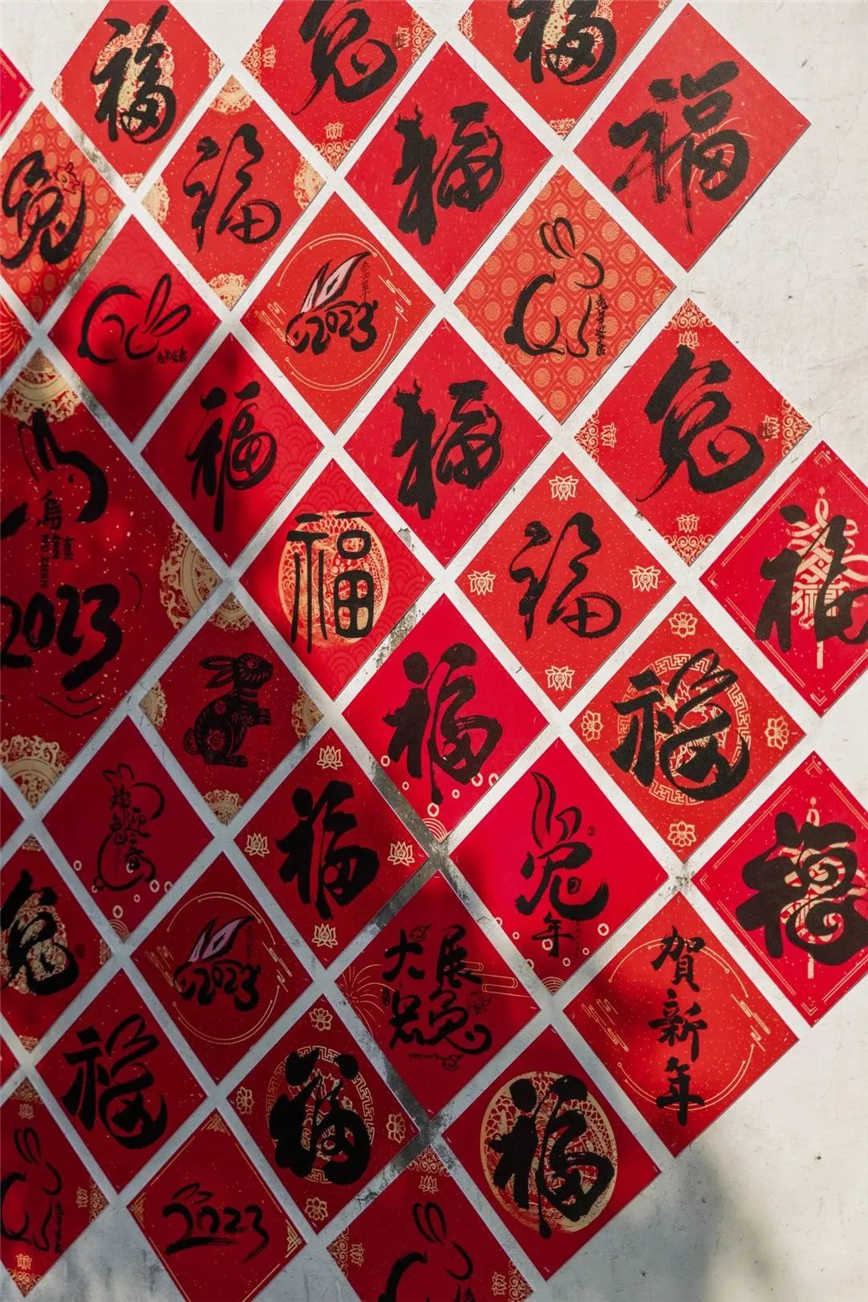 福
兔
福
福
兔
福
福
2023
兔
福
福
福
福
福
2023
福
福
福
兔年
福
兔
2023
大展
宏兔
賀新年
福
福
福
2023